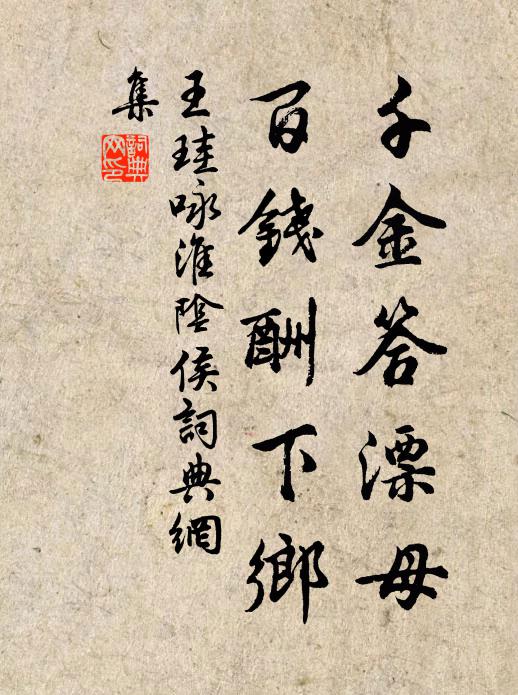 千金答漂母
百錢酬下鄉
王珪咏淮陰侯詞典網
集
詞典
网印